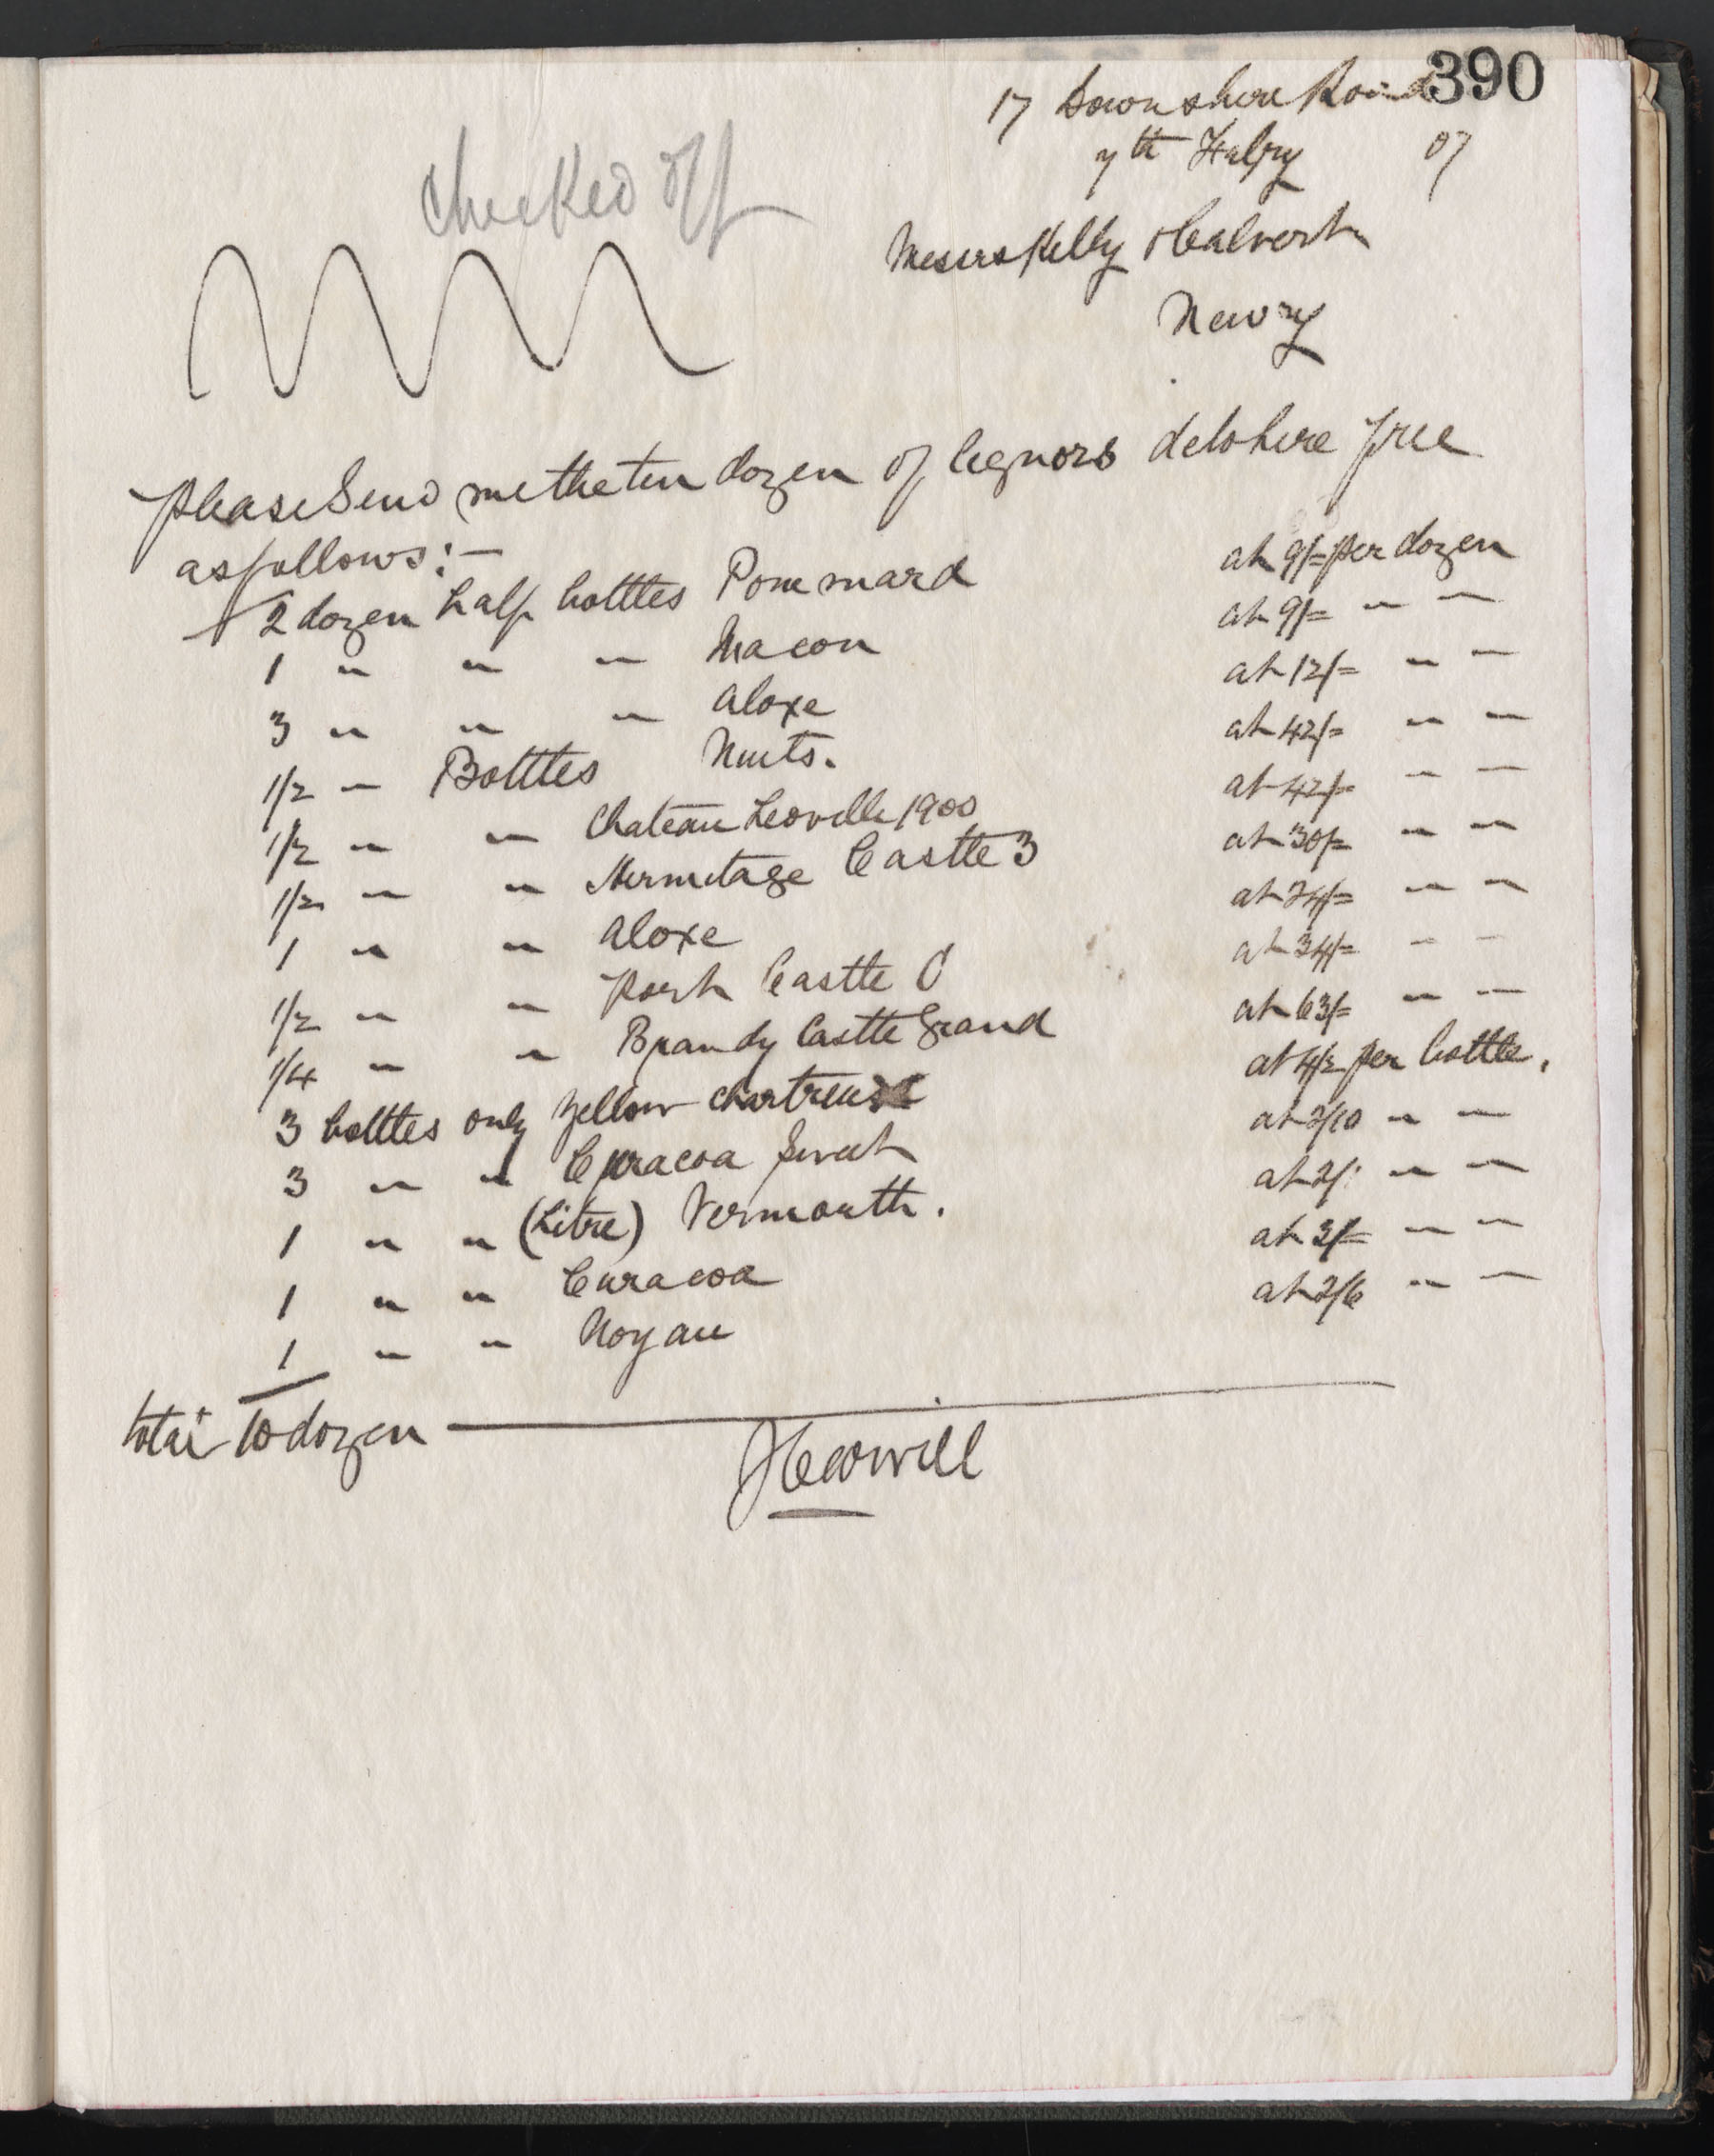 390
17 Downshire Road
7th Febry 07
Messrs Kelly & Calvert
Newry
Checked off
Please Send me the ten dozen of liquors deld here free
as follows:—
2 dozen half bottles Pommard at 9/= per dozen
1 " " " Macon at 9/= " "
3 " " " Aloxe at 12/= " "
1/2 " Botttes Nuits. at 42/= " "
1/2 " " Chateau Leoville 1900 at 42/= " "
1/2 " " Hermitage Castle 3 at 30/= " "
1 " " Aloxe at 24/= " "
1/2 " " Port Castle C at 34/= " "
1/4 " " Brandy Castle Grand at 63/= " "
3 botttes only Yellow Chartreuse at 4/2 per bottle.
3 " " Curacoa Sweet at 2/10 " "
1 " " (Litre) Vermouth. at 2/. " "
1 " " Curacoa at 3/= " "
1 " " Noyau at 2/6 " "
total 10 dozen
JCCowill